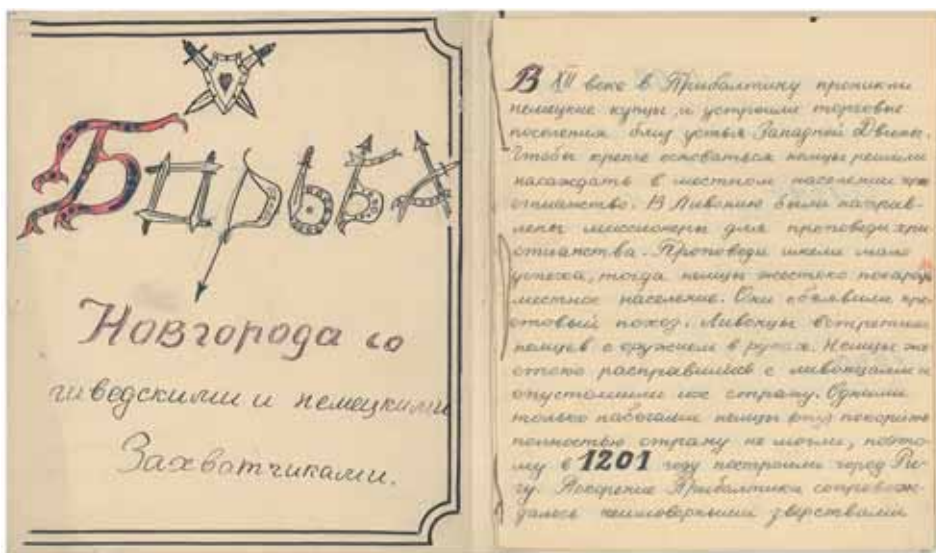 Борьба
Новгорода со
шведскими и немецкими
Захватчиками.
В XII веке в Прибалтику проникли
немецкие купцы, и устроили торговые
поселения близ устья Западной Двины.
Чтобы крепче основаться немцы решили
насаждать в местном населении хри
стианство. В Ливонию были направ-
лены миссионеры для проповеди хри
стианства. Проповеди имели мало
успеха, тогда немцы жестоко
местное население. Они объявили кре
стовый поход. Ливонцы встретили
немцев с оружием в руках. Немцы же
стоко расправились с ливонцами и
опустошили их страну. Одними
только набегами немцы покорить
полностью страну не могли, поэто
му в 1201 году построили город Ри-
гу. Покорение Прибалтики сопровож-
далось неимоверными зверствами